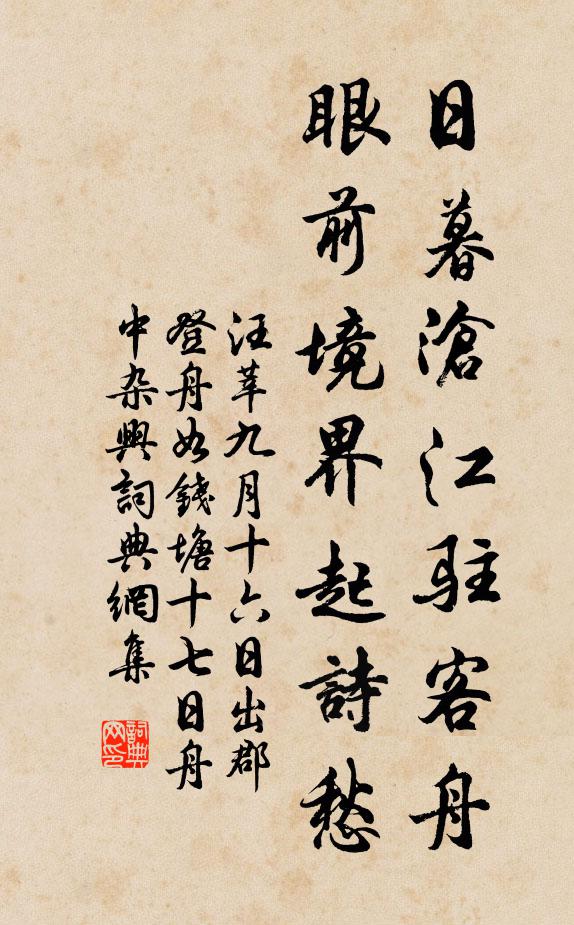 日暮滄江駐客舟
眼前境界起詩愁
汪莘九月十六日出郡
登舟如錢塘十七日舟
中杂興詞典網集
詞典
网印